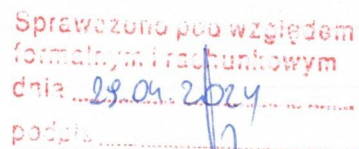 Sprawdzono pod względem
formalnym i rachunkowym
dnia ... 29.04.2024 ...
podpis ...